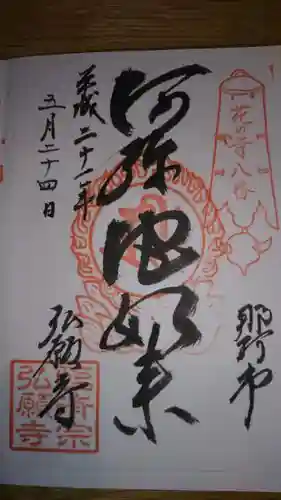 花の寺八番
那珂市
阿弥陀如来
平成二十一年
五月二十四日
弘願寺
真言宗
弘願寺